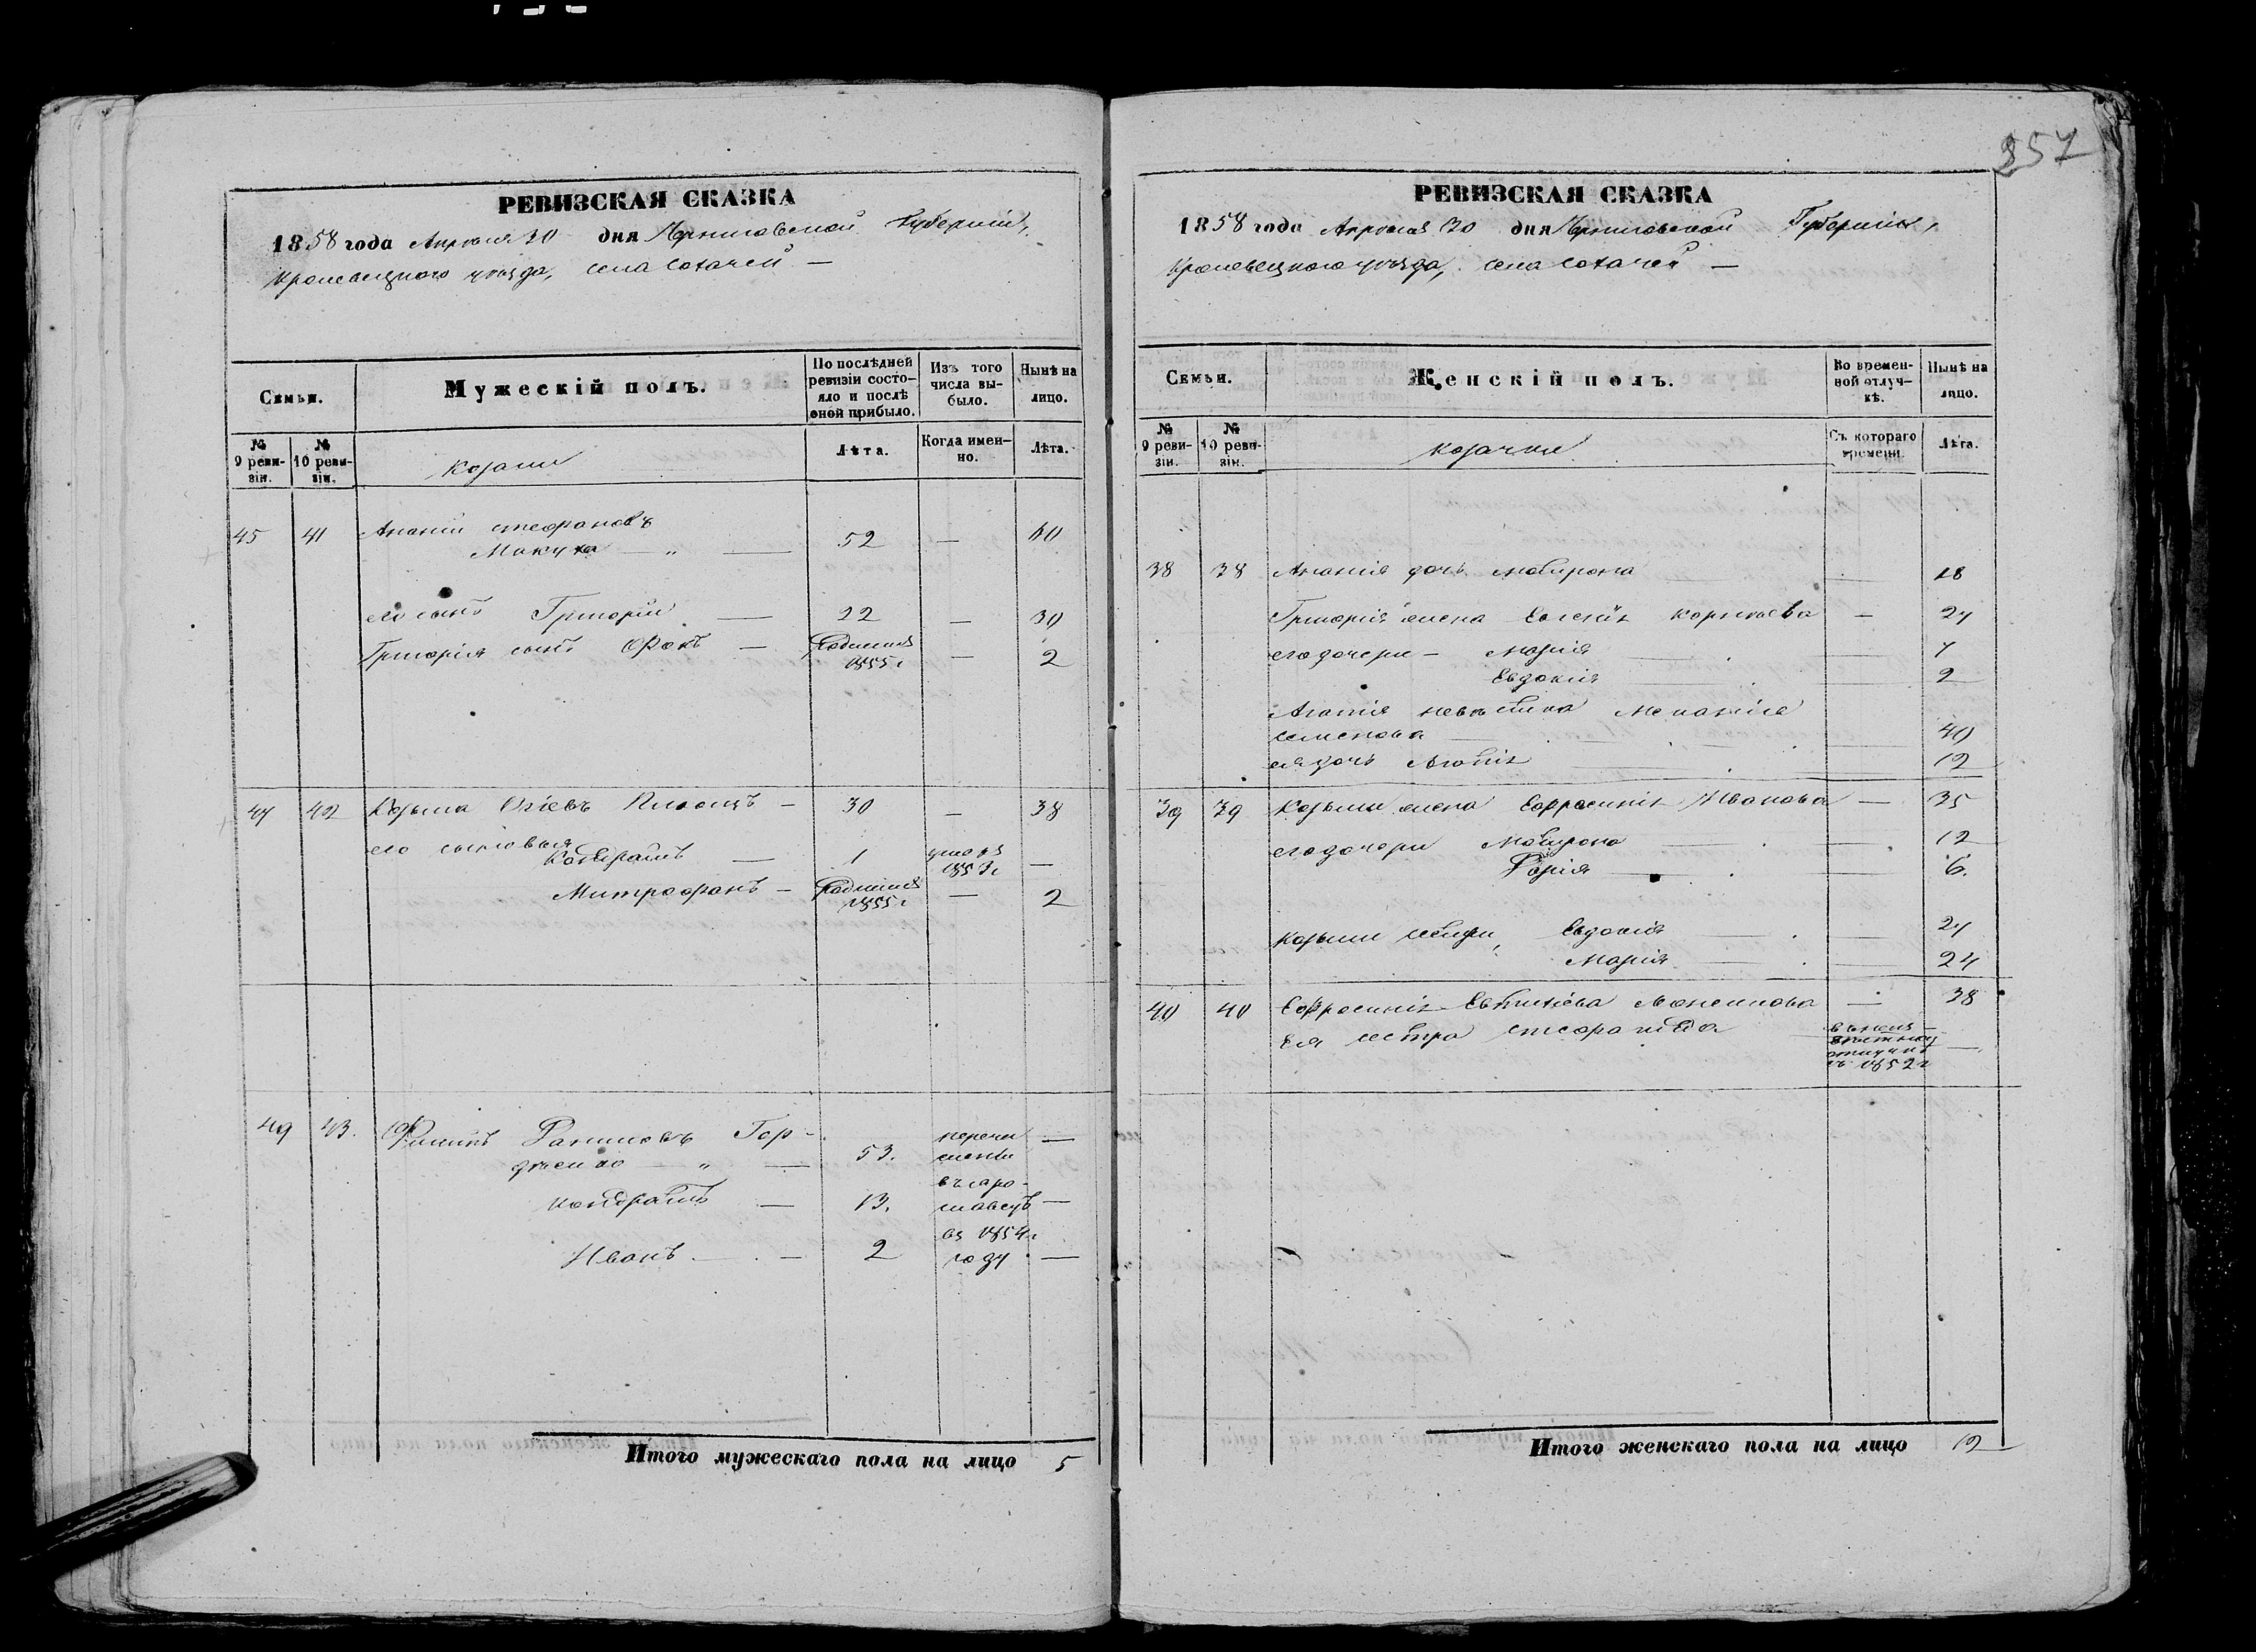 257
РЕВИЗСКАЯ СКАЗКА
1858 года Апреля 30 дня Черниговской Губерніи,
Кролевецкого уезда, села Сохачей —
Семьи.
Мужескій полъ.
По послѣдней ревизіи состо-
яло и послѣ оной прибыло.
Изъ того числа вы-
было.
Нынѣ на лицо.
№ 9 реви-
зіи.
№ 10 реви-
зіи.
Козаки
Лѣта.
Когда имен-
но.
Лѣта.
45 41 Ананій Стефановъ
Макуха — „ — 52 — 60
его сынъ Григорій — 22 — 30
Григорія сынъ — Родился 1855 г — 2
47 42 Козьма — 30 — 38
его сыновья
Кондратъ — 1 умеръ 1853 г —
Митрофанъ — Родился 1855 г — 2
49 43. Гор-
дѣенко — „ — 53. перечи
слены —
Кондратъ — 13. въ Яро-
славецъ —
Иванъ — 2 въ 1854 г
году —
Итого мужескаго пола на лицо 5
РЕВИЗСКАЯ СКАЗКА
1858 года Апреля 30 дня Черниговской Губерніи,
Кролевецкого уезда, села Сохачей —
Семьи.
Женскій полъ.
Во времен-
ной отлуч-
кѣ.
Нынѣ на лицо.
№ 9 реви-
зіи.
№ 10 реви-
зіи.
Козачки
Съ котораго времени.
Лѣта.
38 38 Ананія дочь — 18
Григорія жена Евгенія Корніева — 27
его дочери — Марія — 7
Евдокія — 2
Ананія невѣстка Меланія
Семенова — 40
ея дочь — 12
39 39 Козьмы жена Ефросинія Иванова — 35
его дочери — 12
— 6.
Козьмы сестры Евдокія — 27
Марія — 24
40 40 Ефросинія — 38
Ея сестра Стефанида въ неиз-
вѣстной
отлучкѣ
съ 1852 г —
Итого женскаго пола на лицо 12